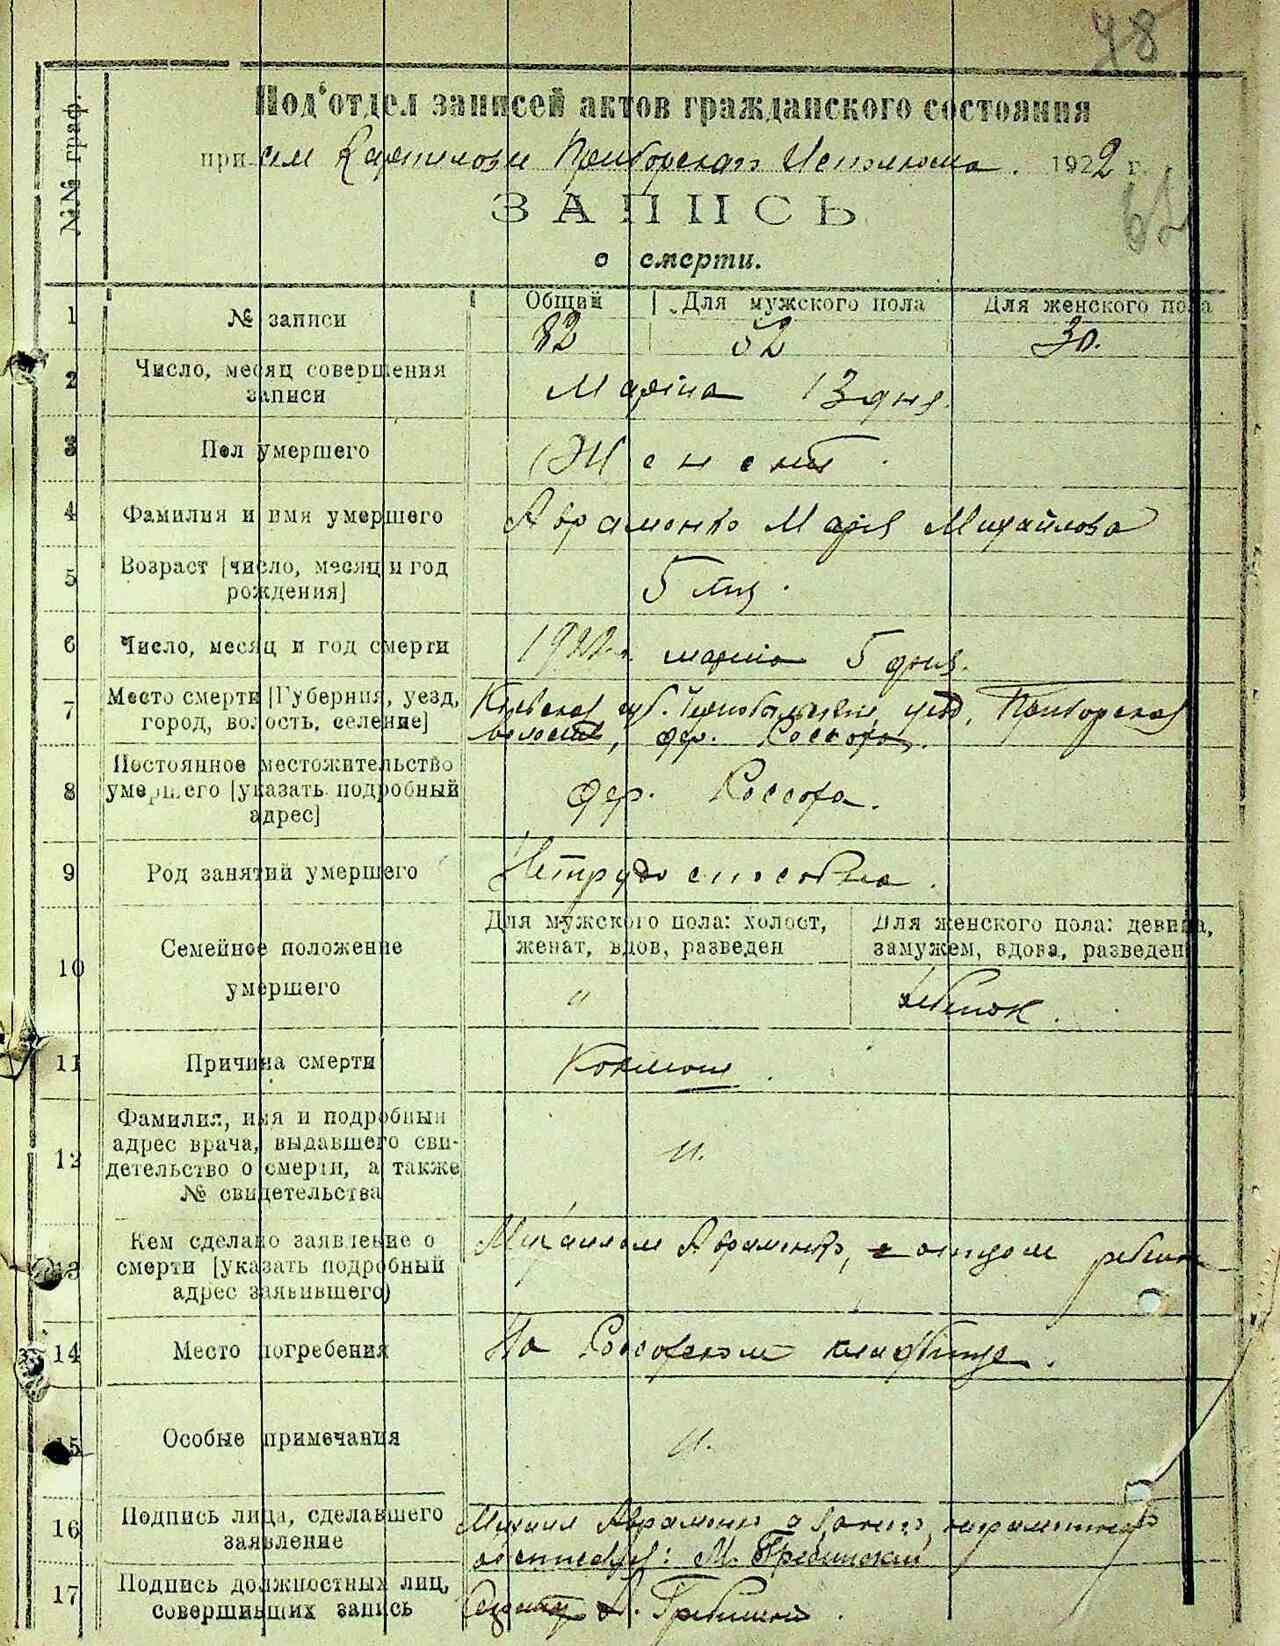 78
№№ граф.
Под'отдел записей актов гражданского состояния
при Приборском Исполкома. 1922 г.
62
ЗАПИСЬ
о смерти.
1 № записи Общий Для мужского пола Для женского пола
82 52 30.
2 Число, месяц совершения записи Марта 13 дня
3 Пол умершего Женский
4 Фамилия и имя умершего Авраменко Мария Михайлова
5 Возраст [число, месяц и год рождения] 5 лет.
6 Число, месяц и год смерти 1922 г. марта 5 дня.
7 Место смерти [Губерния, уезд, город, волость, селение] Киевская губ. Чернобыльский уезд, Приборская
волость, дер. Россоха.
8 Постоянное местожительство умершего [указать подробный адрес] дер. Россоха.
9 Род занятий умершего Нетрудоспособна.
10 Семейное положение умершего
Для мужского пола: холост, женат, вдов, разведен
Для женского пола: девица, замужем, вдова, разведен
" ребенок.
11 Причина смерти Коклюш.
12 Фамилия, имя и подробный адрес врача, выдавшего свидетельство о смерти, а также № свидетельства
".
13 Кем сделано заявление о смерти [указать подробный адрес заявившего) Михаилом Авраменко, отцом ребенка
14 Место погребения На Россохском кладбище.
15 Особые примечания ".
16 Подпись лица, сделавшего заявление Михаил Авраменко а за него, неграмотного
росписался: М. Гребинский
17 Подпись должностных лиц, совершивших запись Секретарь Гребинский.